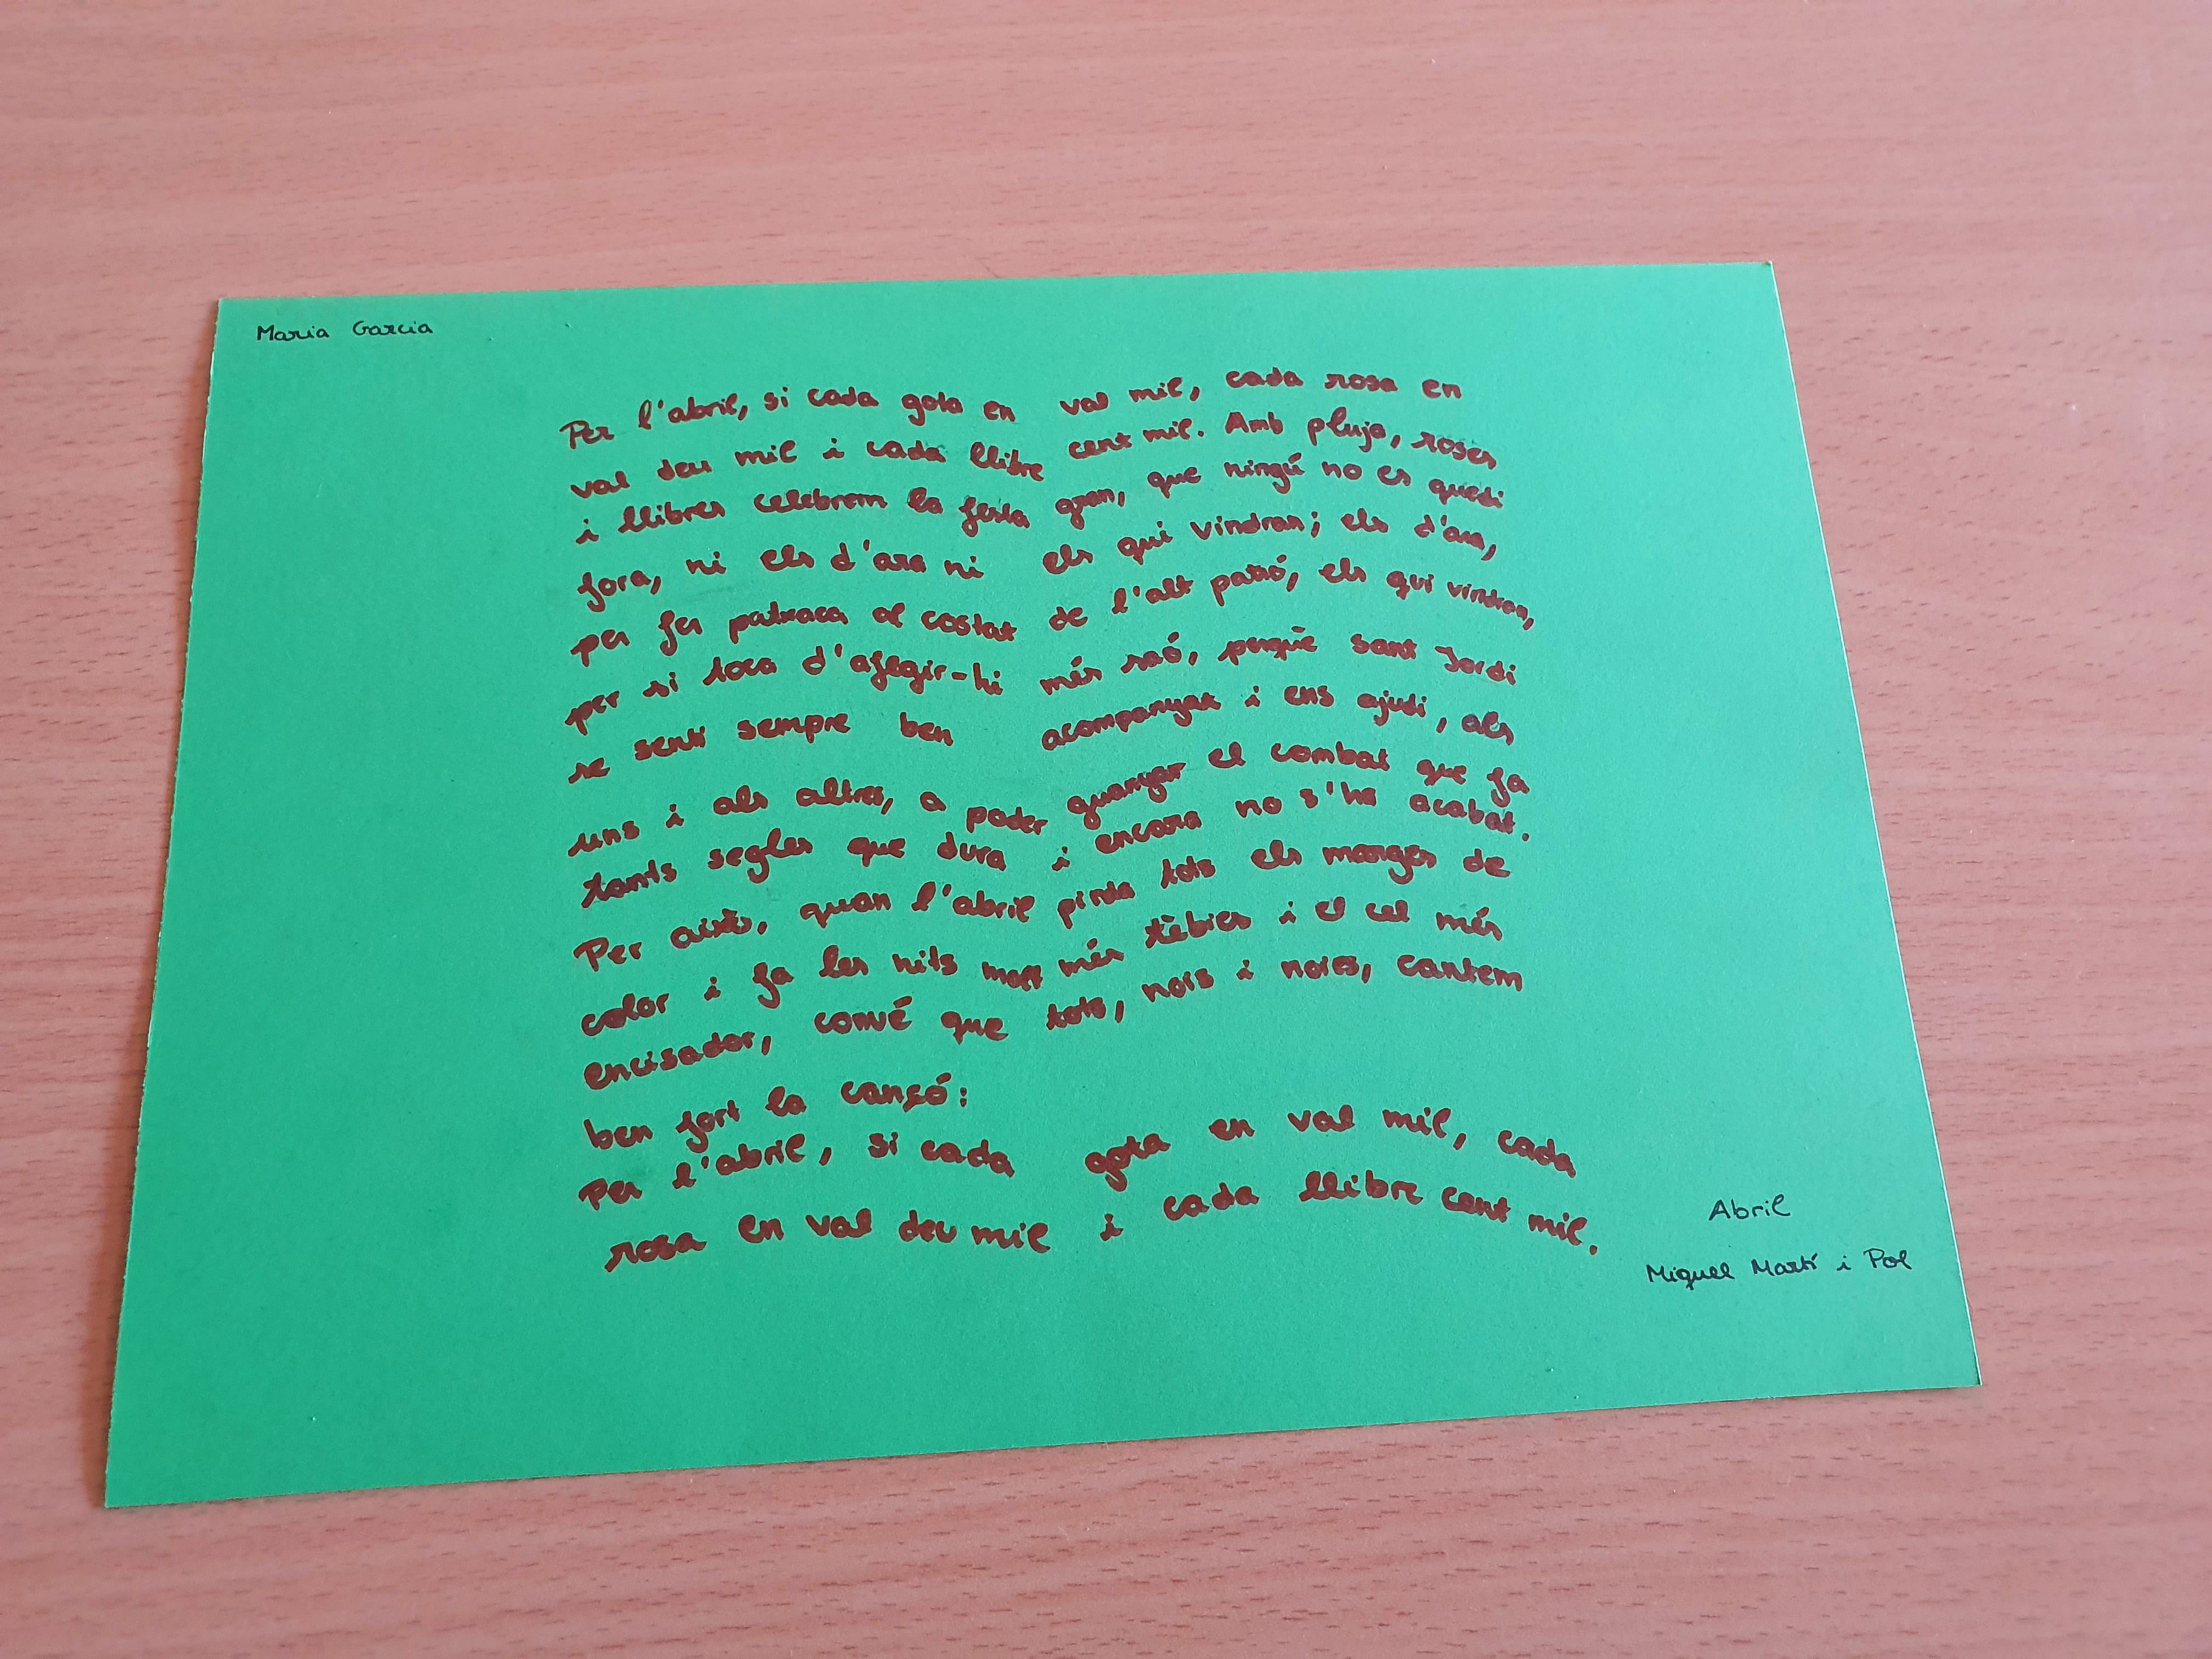 Maria Garcia
Per l'abril, si cada gota en val mil, cada rosa en
val deu mil i cada llibre cent mil. Amb pluja, roses
i llibres celebrem la festa gran, que ningú no es quedi
fora, ni els d'ara ni els qui vindran; els d'ara,
per fer patxaca al costat de l'alt patró, els qui vindran,
per si toca d'afegir-hi més raó, perquè sant Jordi
se senti sempre ben acompanyat i ens ajudi, als
uns i als altres, a poder guanyar el combat que fa
tants segles que dura i encara no s'ha acabat.
Per això, quan l'abril pinta tots els marges de
color i fa les nits més tèbies i el cel més
encisador, convé que tots, nois i noies, cantem
ben fort la cançó:
Per l'abril, si cada gota en val mil, cada
rosa en val deu mil i cada llibre cent mil.
Abril
Miquel Martí i Pol